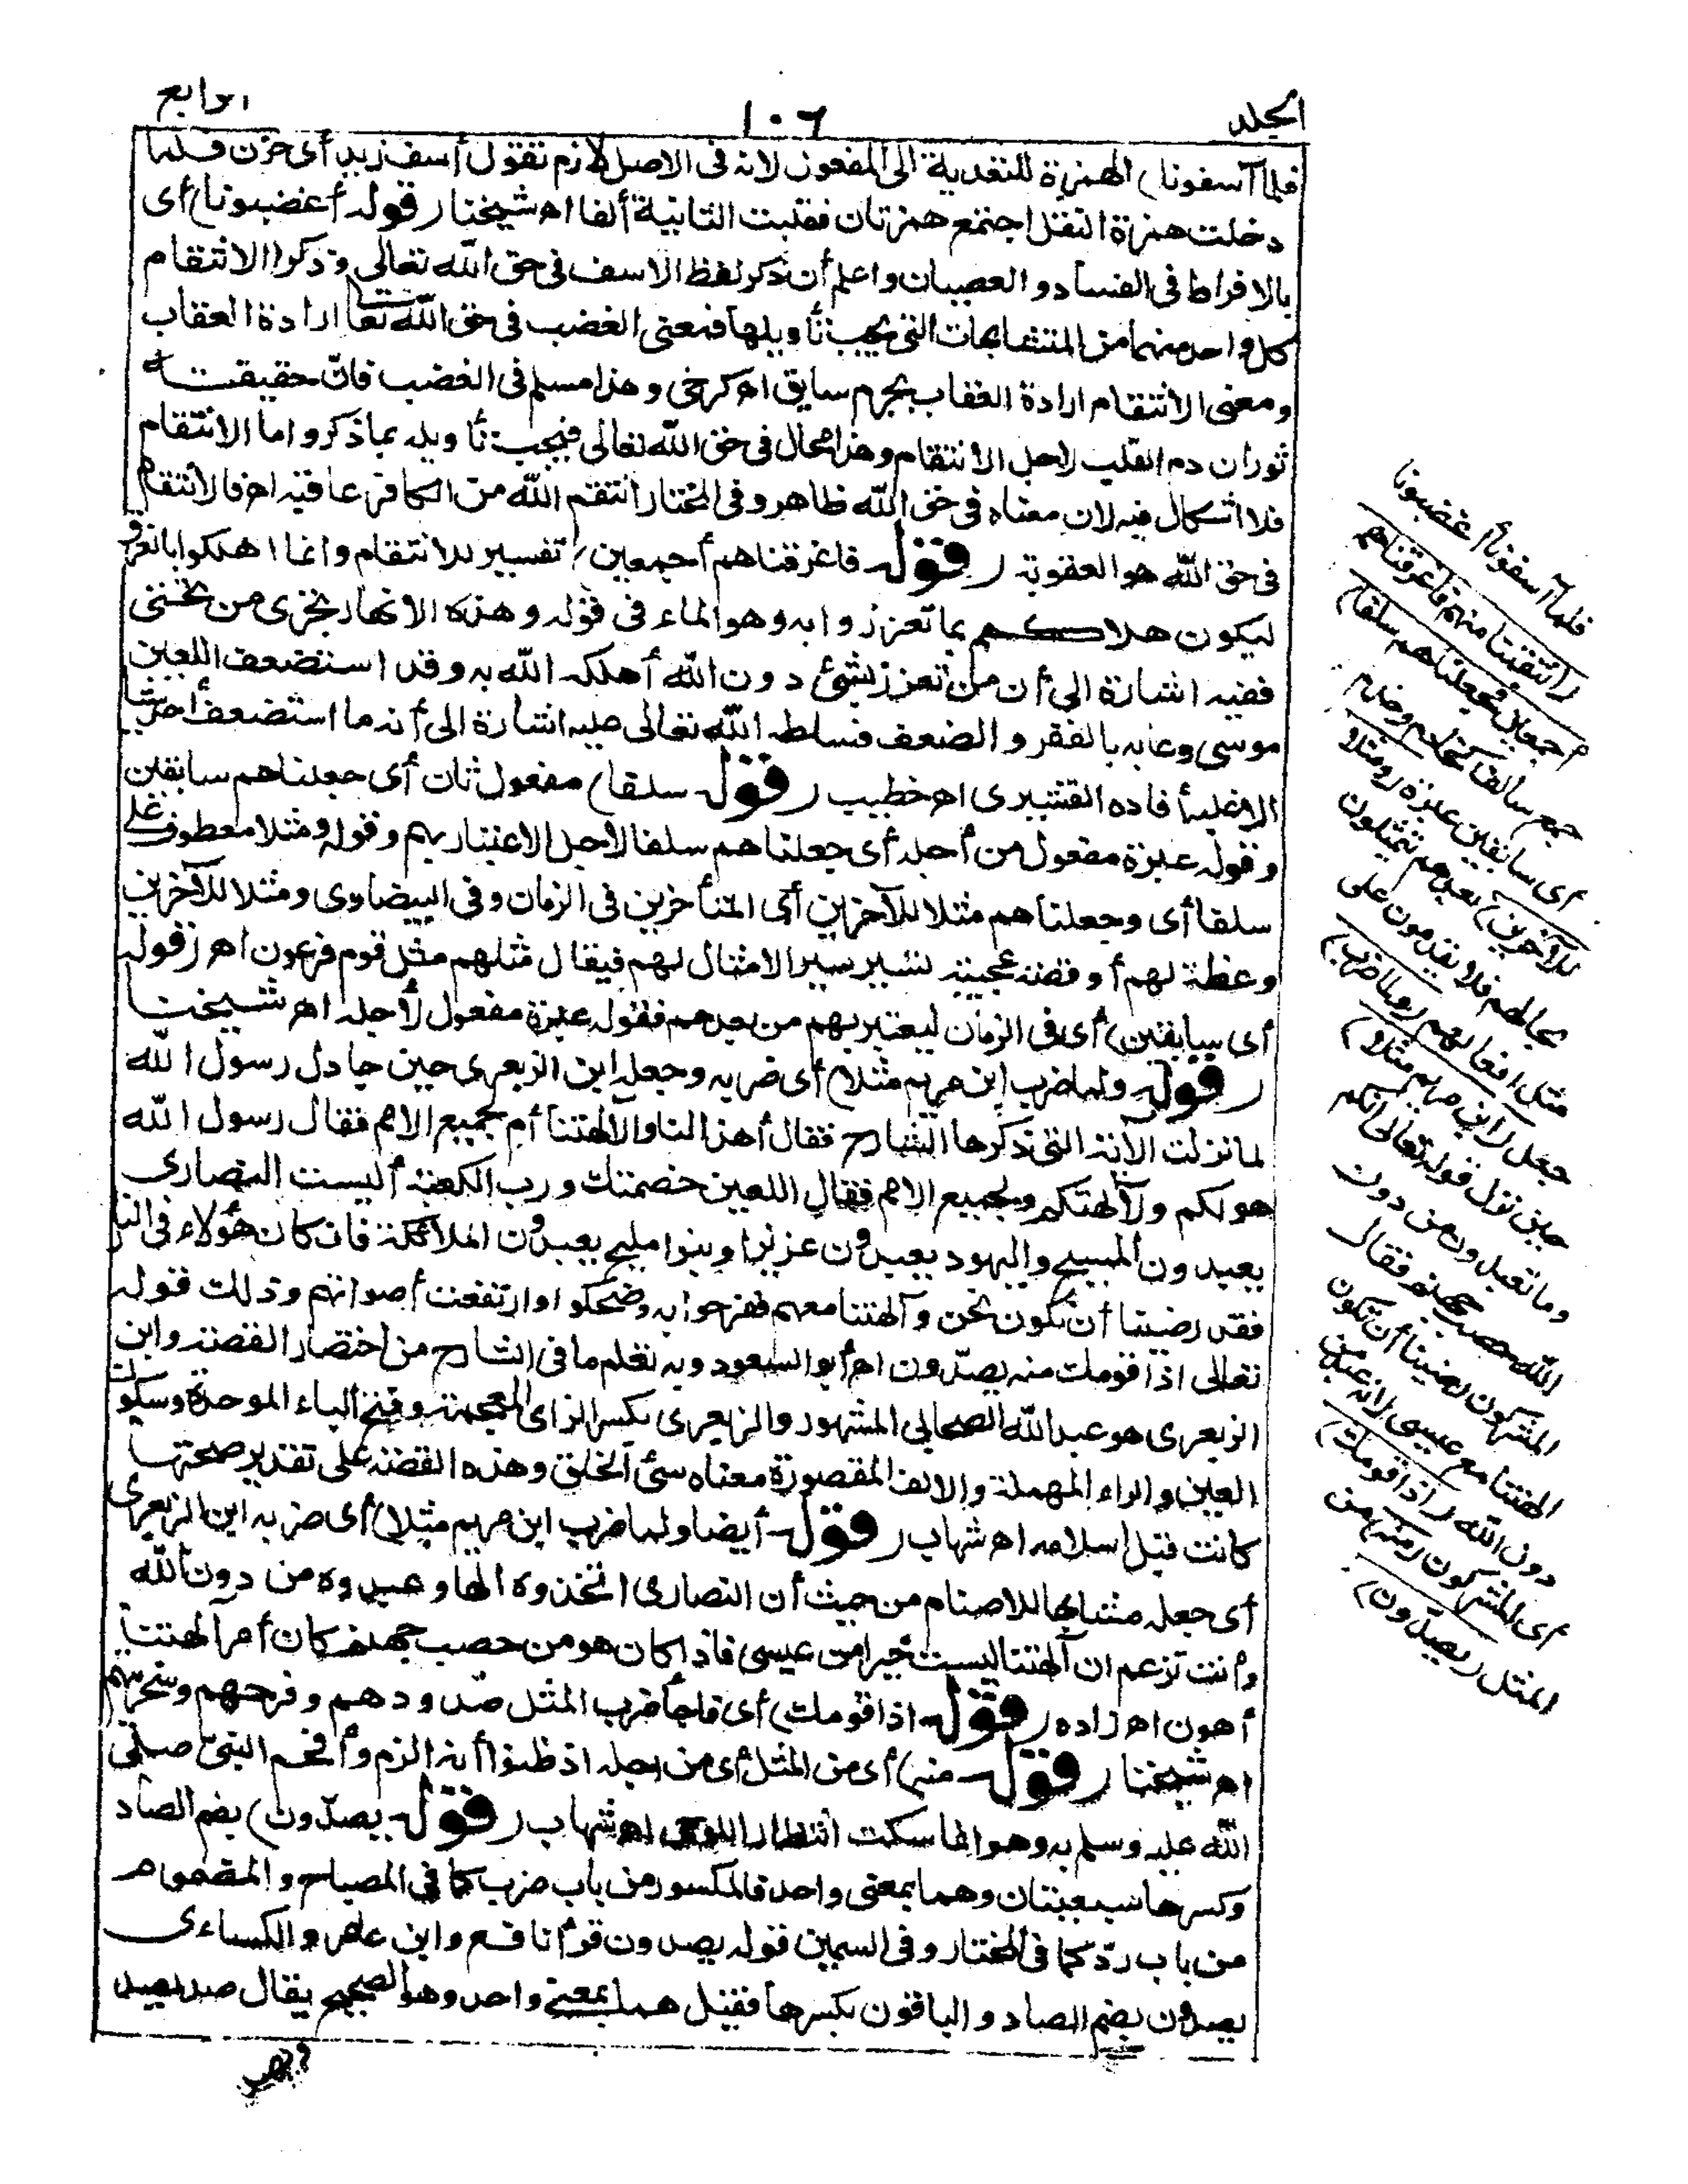 المجلد
١٠٦
الرابع
فلما آسفونا) الهمزة للتعدية الى المفعول لانه فى الاصل لازم تقول أسف زيد أى حزن فلما
دخلت همزة النقل اجتمع همزتان فقلبت الثانية ألفا اه شيخنا ( قوله أغضبونا) أى
بالافراط فى الفساد و العصيان واعلم أن ذكر لفظ الاسف فى حق الله تعالى و ذكر الانتقام
كل واحد منهما من المتشابهات التى يجب تأويلها فمعنى الغضب فى حق الله تعا ارادة العقاب
ومعنى الانتقام ارادة العقاب بجرم سابق اه كرخى وهذا مسلم فى الغضب فان حقيقته
ثوران دم القلب لاجل الانتقام وهذا محال فى حق الله تعالى فيجب تأويله بما ذكر و اما الانتقام
فلا اشكال فيه لان معناه فى حق الله ظاهر و فى المختار انتقم الله من الكافر عاقبه اه فالانتقام
فى حق الله هو العقوبة ( قوله فاغرقناهم أجمعين) تفسير للانتقام وانما اهلكوا بالغرق
ليكون هلاكهم بما تعززوا به وهو الماء فى قوله وهذه الانهار تجرى من تحتى
ففيه اشارة الى أن من تعزز بشئ دون الله أهلكه الله به وقد استضعف اللعين
موسى وعابه بالفقر و الضعف فسلطه الله تعالى عليه اشارة الى أنه ما استضعف أحد شيئا
الا غلبه أفاده القشيرى اه خطيب ( قوله سلفا) مفعول ثان أى جعلناهم سابقين
وقوله عبرة مفعول من أجله أى جعلناهم سلفا لاجل الاعتبار بهم وقوله ومثلا معطوف على
سلفا أى وجعلناهم مثلا للآخرين أى المتأخرين فى الزمان وفى البيضاوى ومثلا للآخرين
وعظة لهم أو قصة عجيبة تسير سير الامثال لهم فيقال مثلهم مثل قوم فرعون اه (قوله
أى سابقين) أى فى الزمان ليعتبر بهم من بعدهم فقوله عبرة مفعول لأجله اه شيخنا
( قوله ولما ضرب ابن مريم مثلا) أى ضربه وجعله ابن الزبعرى حين جادل رسول الله
لما نزلت الآية التى ذكرها الشارح فقال أهذا لنا ولآلهتنا أم لجميع الامم فقال رسول الله
هو لكم ولآلهتكم ولجميع الامم فقال اللعين خصمتك ورب الكعبة أليست النصارى
يعبدون المسيح واليهود يعبدون عزيرا وبنوا مليح يعبدون الملائكة فان كان هؤلاء فى النار
فقد رضينا أن نكون نحن وآلهتنا معهم ففرحوا به وضحكوا وارتفعت أصواتهم وذلك قوله
تعالى اذا قومك منه يصدّون اه أبو السعود وبه تعلم ما فى الشارح من اختصار القصة وابن
الزبعرى هو عبد الله الصحابى المشهور والزبعرى بكسر الزاى المعجمة وفتح الباء الموحدة وسكون
العين والراء المهملة والالف المقصورة معناه سئ الخلق وهذه القصة على تقدير صحتها
كانت قبل اسلامه اه شهاب ( قوله أيضا ولما ضرب ابن مريم مثلا) أى ضربه ابن الزبعرى
أى جعله مشابها للاصنام من حيث أن النصارى اتخذوه الها وعبدوه من دون الله
وأنت تزعم ان آلهتنا ليست خيرا من عيسى فاذا كان هو من حصب جهنم كان أمر آلهتنا
أهون اه زاده ( قوله اذا قومك) أى فاجأ ضرب المثل صدودهم وفرحهم وسخريتهم
اه شيخنا ( قوله منه) أى من المثل أى من اجله اذ ظنوا أنه الزم وأفحم النبىّ صلى
الله عليه وسلم به وهو انما سكت انتظارا للوحى اه شهاب ( قوله يصدّون) بضم الصاد
وكسرها سبعيتان وهما بمعنى واحد فالمكسور من باب ضرب كما فى المصباح و المضموم
من باب ردّ كما فى المختار و فى السمين قوله يصدون قرأ نافع وابن عامر و الكساءى
يصدون بضم الصاد و الباقون بكسرها فقيل هما بمعنى واحد وهو الصحيح يقال صد يصد
فلما آسفونا) أغضبونا
(انتقمنا منهم فاغرقناهم
أجمعين فجعلناهم سلفا)
جمع سالف كخادم وخدم
أى سابقين عبرة (ومثلا
للآخرين) بعدهم يتمثلون
بحالهم فلا يقدمون على
مثل افعالهم (ولما ضرب)
جعل (ابن مريم مثلا)
حين نزل قوله تعالى انكم
وما تعبدون من دون
الله حصب جهنم فقال
المشركون رضينا أن تكون
الهتنا مع عيسى لانه عبد من
دون الله (اذا قومك)
أى المشركون (منه) من
المثل (يصدّون)